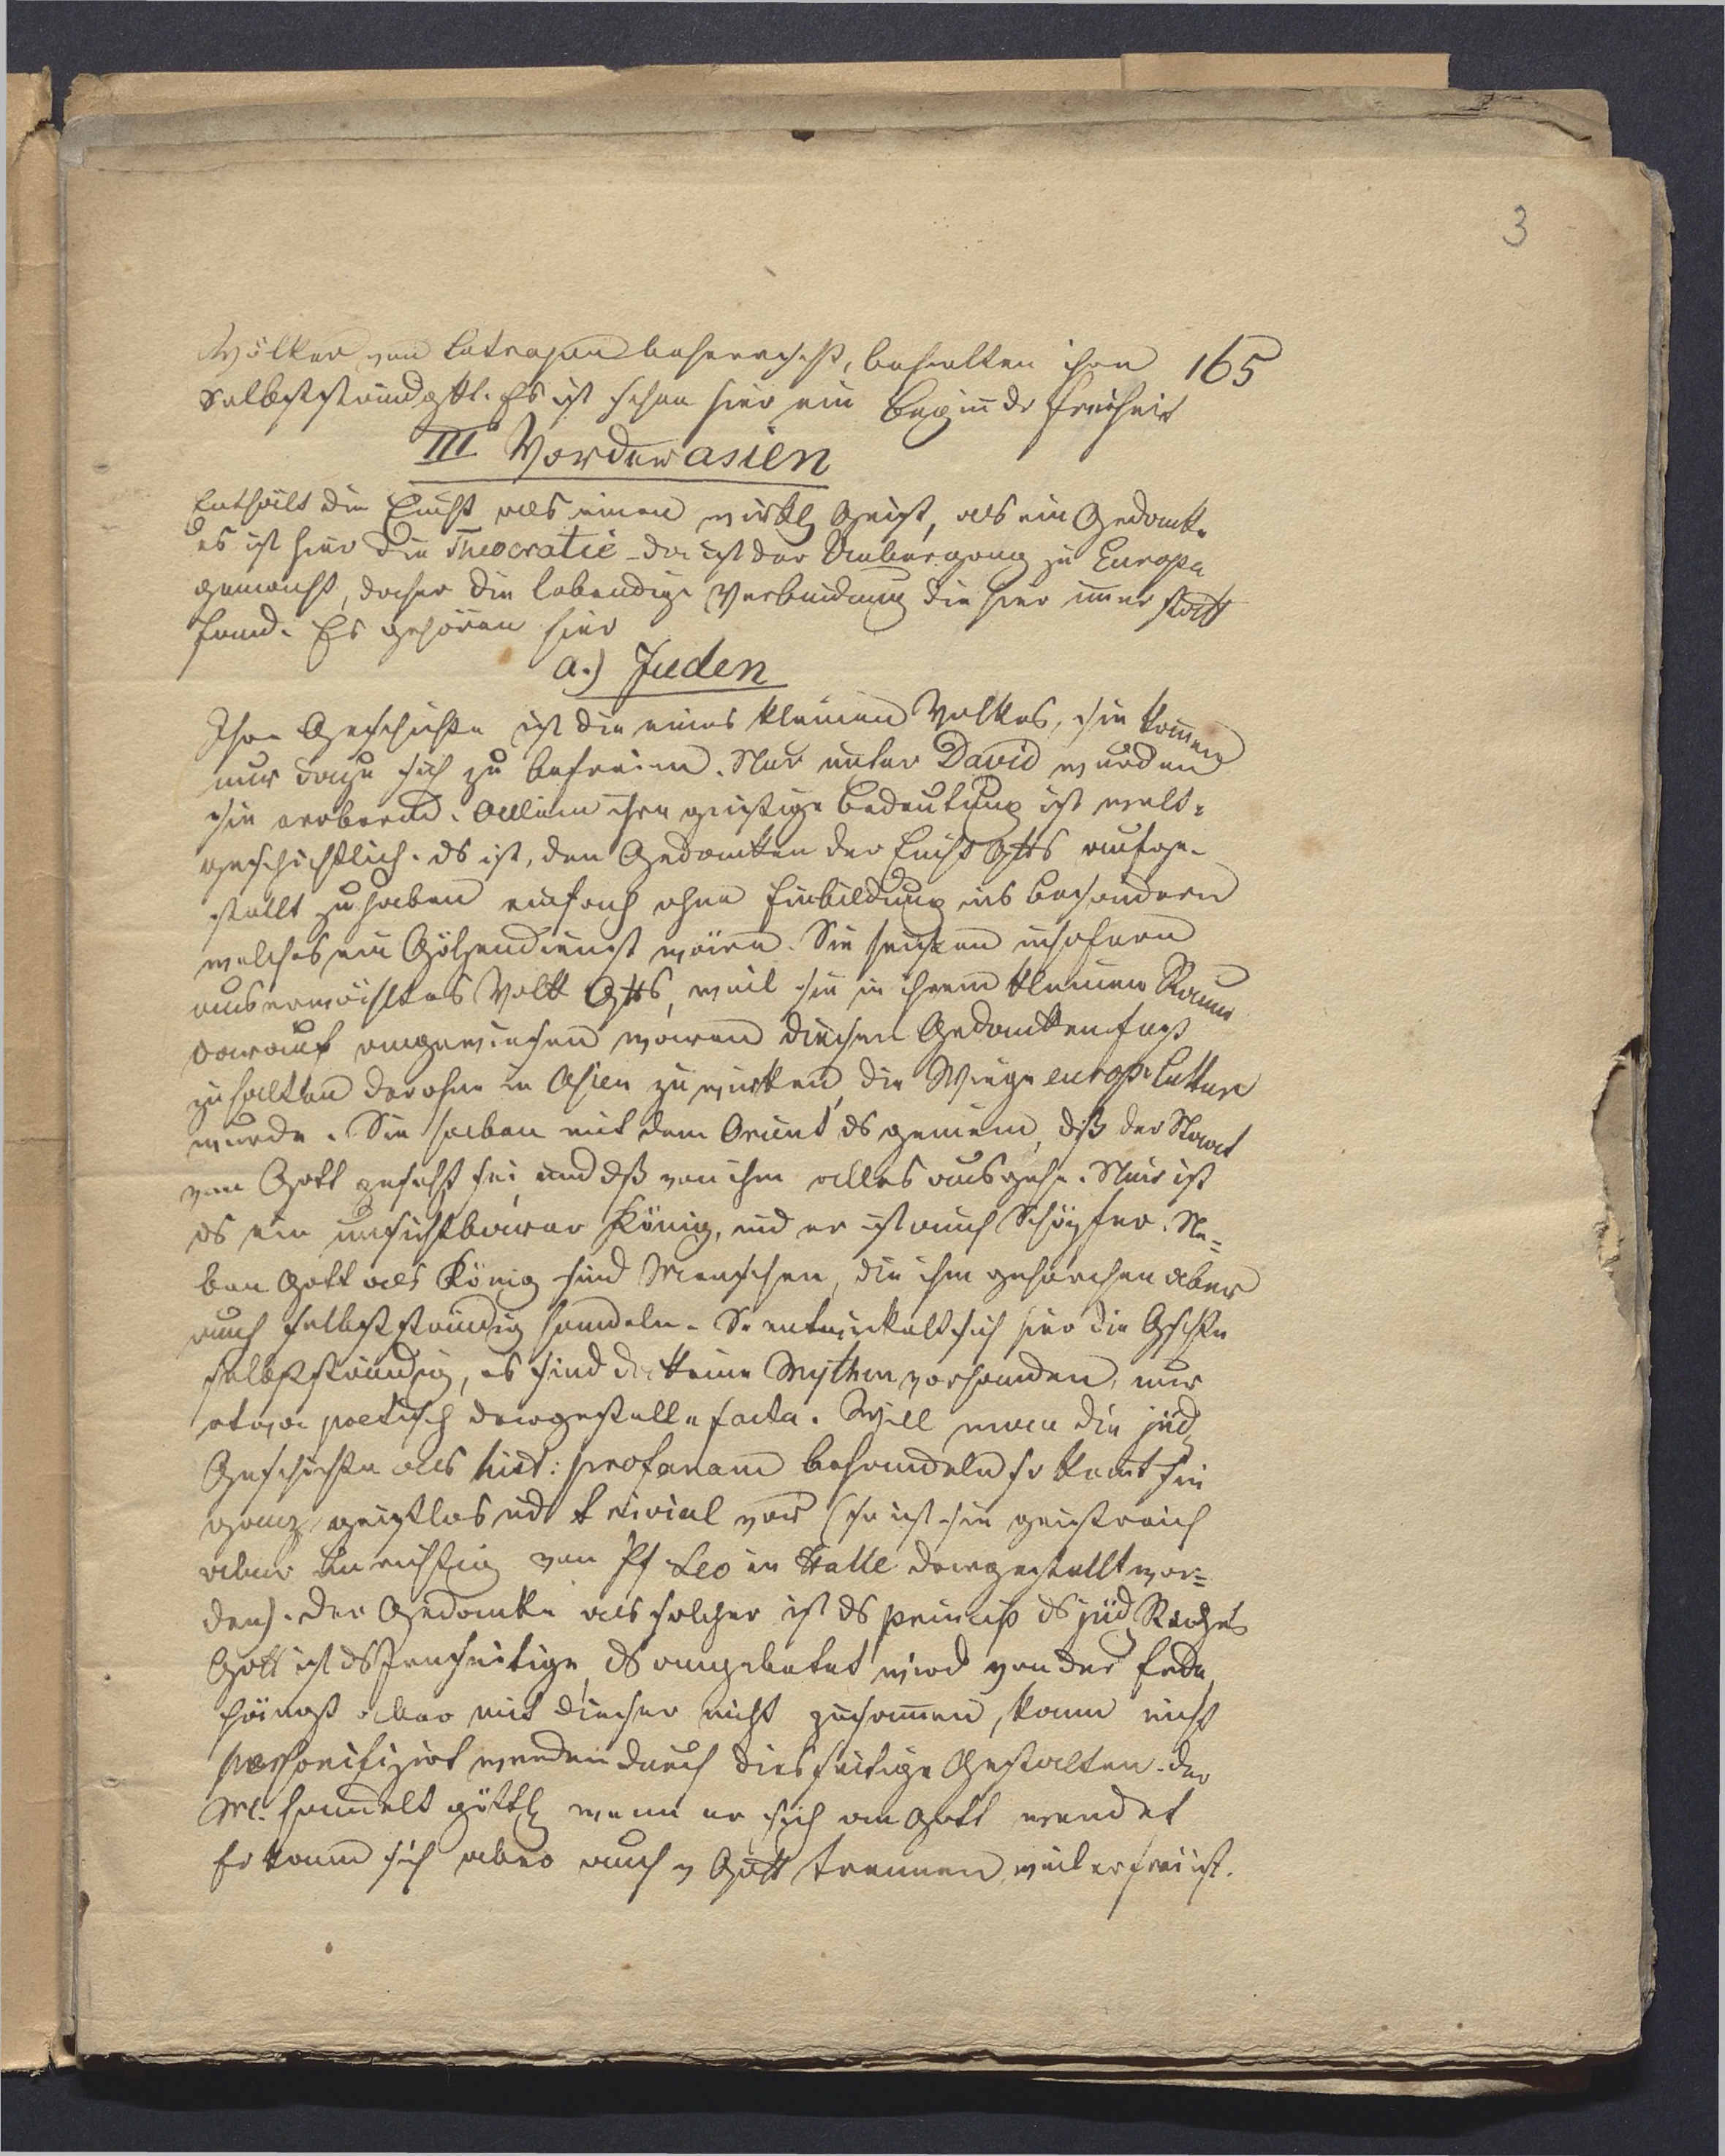 3
Völker von Satrapen beherrscht, behalten ihre 165
Selbstständgkt. Es ist schon hier ein Begiñ dr Freiheit
III Vorderasien
Enthält die Einht als einen wirkl Geist, als ein Gedanke
es ist hier die Theocratie - da ist der Uebergang zu Europa
gemacht, daher die lebendige Verbindung die hier im̄er statt
fand. Es gehören hier
a.) Juden
Ihre Geschichte ist die eines kleinen Volkes, sie kom̄en
nur dazu sich zu befreien. Nur unter David wurden
sie erobernd. Allein ihre geistige Bedeutung ist welt-
geschichtlich. ds ist, den Gedanken der Einht Gtts aufge-
stellt zu haben einfach ohne Einbildung ins Besondern
welches ein Götzendienst wäre. Sie heissen insofern
auserwähltes Volk Gtts, weil sie in ihrem kleinen Raum
darauf angewiesen waren diesen Gedanken fest
zu halten der ohne in Asien zu wirken, die Wiege europ. Cultur
wurde. Sie haben mit dem Orient ds gemein, dß der Staat
von Gott gesetzt sei, und dß von ihm alles ausgehe. Nur ist
es ein unsichtbarer König, und er ist auch Schöpfer. Ne-
ben Gott als König sind Menschen, die ihm gehorchen aber
auch selbstständig handeln. So entwickelt sich hier die Gschte
selbstständig, es sind da keine Mythen vorhanden, nur
etwa poetisch dargestellte facta. Will man die jüd
Geschichte als hist: profanam behandeln so kom̄t sie
ganz geistlos ud trivial vor (so ist sie geistreich
aber unrichtig von Pf Leo in Halle dargestellt wor-
den). der Gedanke als solcher ist ds princip ds jüd Reiches
Gott ist ds Jenseitige, ds angebetet wird von der Erde,
hängt aber mit dieser nicht zusam̄en, kann nicht
personifizirt werden durch diesseitige Gestalten. der
M. handelt göttl wenn er sich an Gott wendet
Er kann sich aber auch v Gott trennen, weil er frei ist.